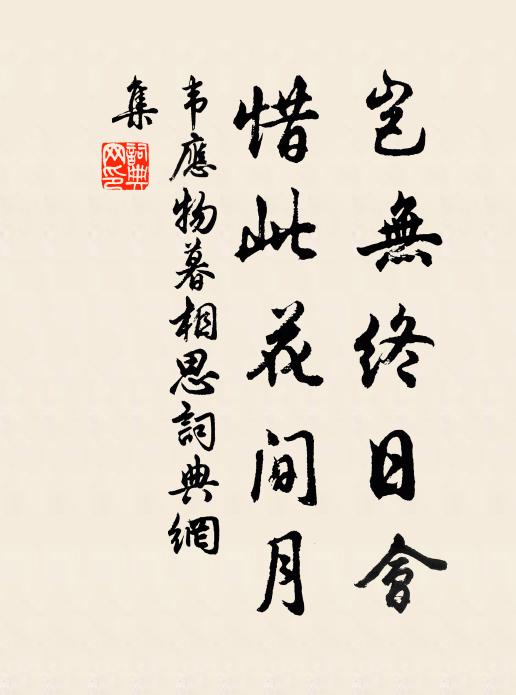 豈無終日會
惜此花間月
韦應物暮相思詞典網
集
詞典
网印